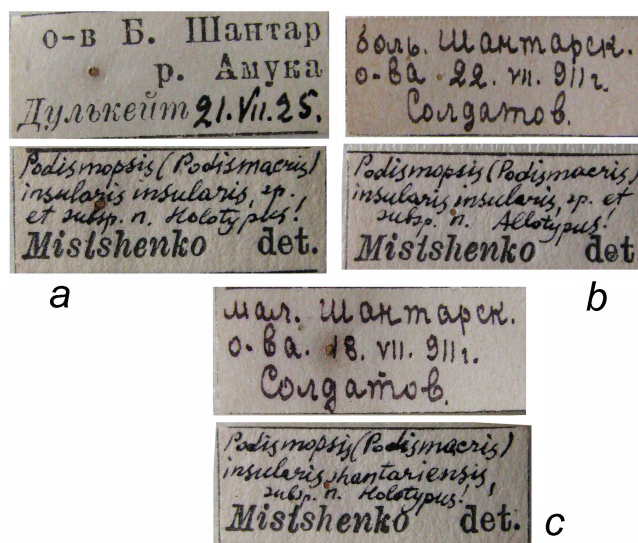 о-в Б. Шантар
р. Амука
Дулькейт 21.VII.25.
Podismopsis (Podismacris)
insularis insularis, sp.
et subsp. n. Holotypus!
Mistshenko det.
a
боль. Шантарск.
о-ва 22. VII. 911 г.
Солдатов.
Podismopsis (Podismacris)
insularis insularis, sp. et
subsp. n. Allotypus!
Mistshenko det
b
мал. Шантарск.
о-ва. 18. VII. 911 г.
Солдатов.
Podismopsis (Podismacris)
insularis shantariensis,
subsp. n. Holotypus!
Mistshenko det.
c